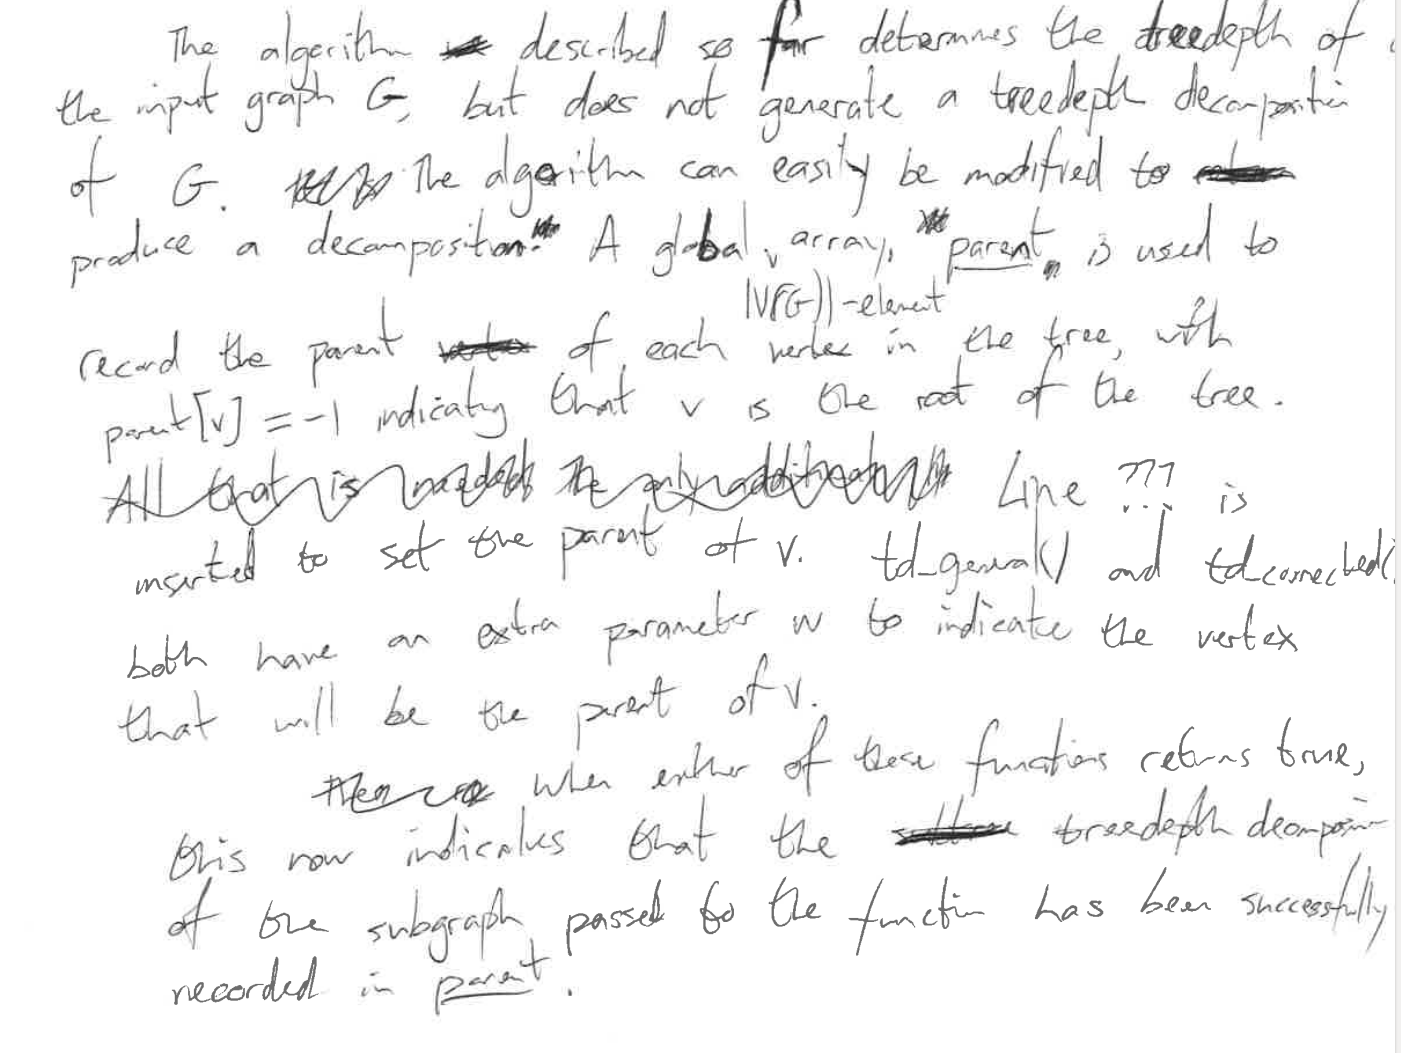 The algorithm described so far determines the treedepth of
the input graph G, but does not generate a treedepth decomposition
of G. The algorithm can easily be modified to
produce a decomposition. A global array, parent is used to
|V(G)|-element
record the parent of each vertex in the tree, with
parent[v] = -1 indicating that v is the root of the tree.
All that is needed The only Line ??? is
inserted to set the parent of v. td_general() and td_connected(
both have an extra parameter w to indicate the vertex
that will be the parent of v.
when either of these functions returns true,
this now indicates that the treedepth decomposition
of the subgraph passed to the function has been successfully
recorded in parent.